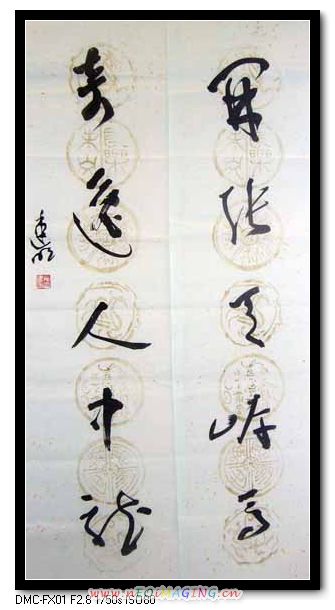 開張天岸馬
奇逸人中龍
DMC-FX01 F2.8 1/50s ISO80
www.nEOiMAGING.cn